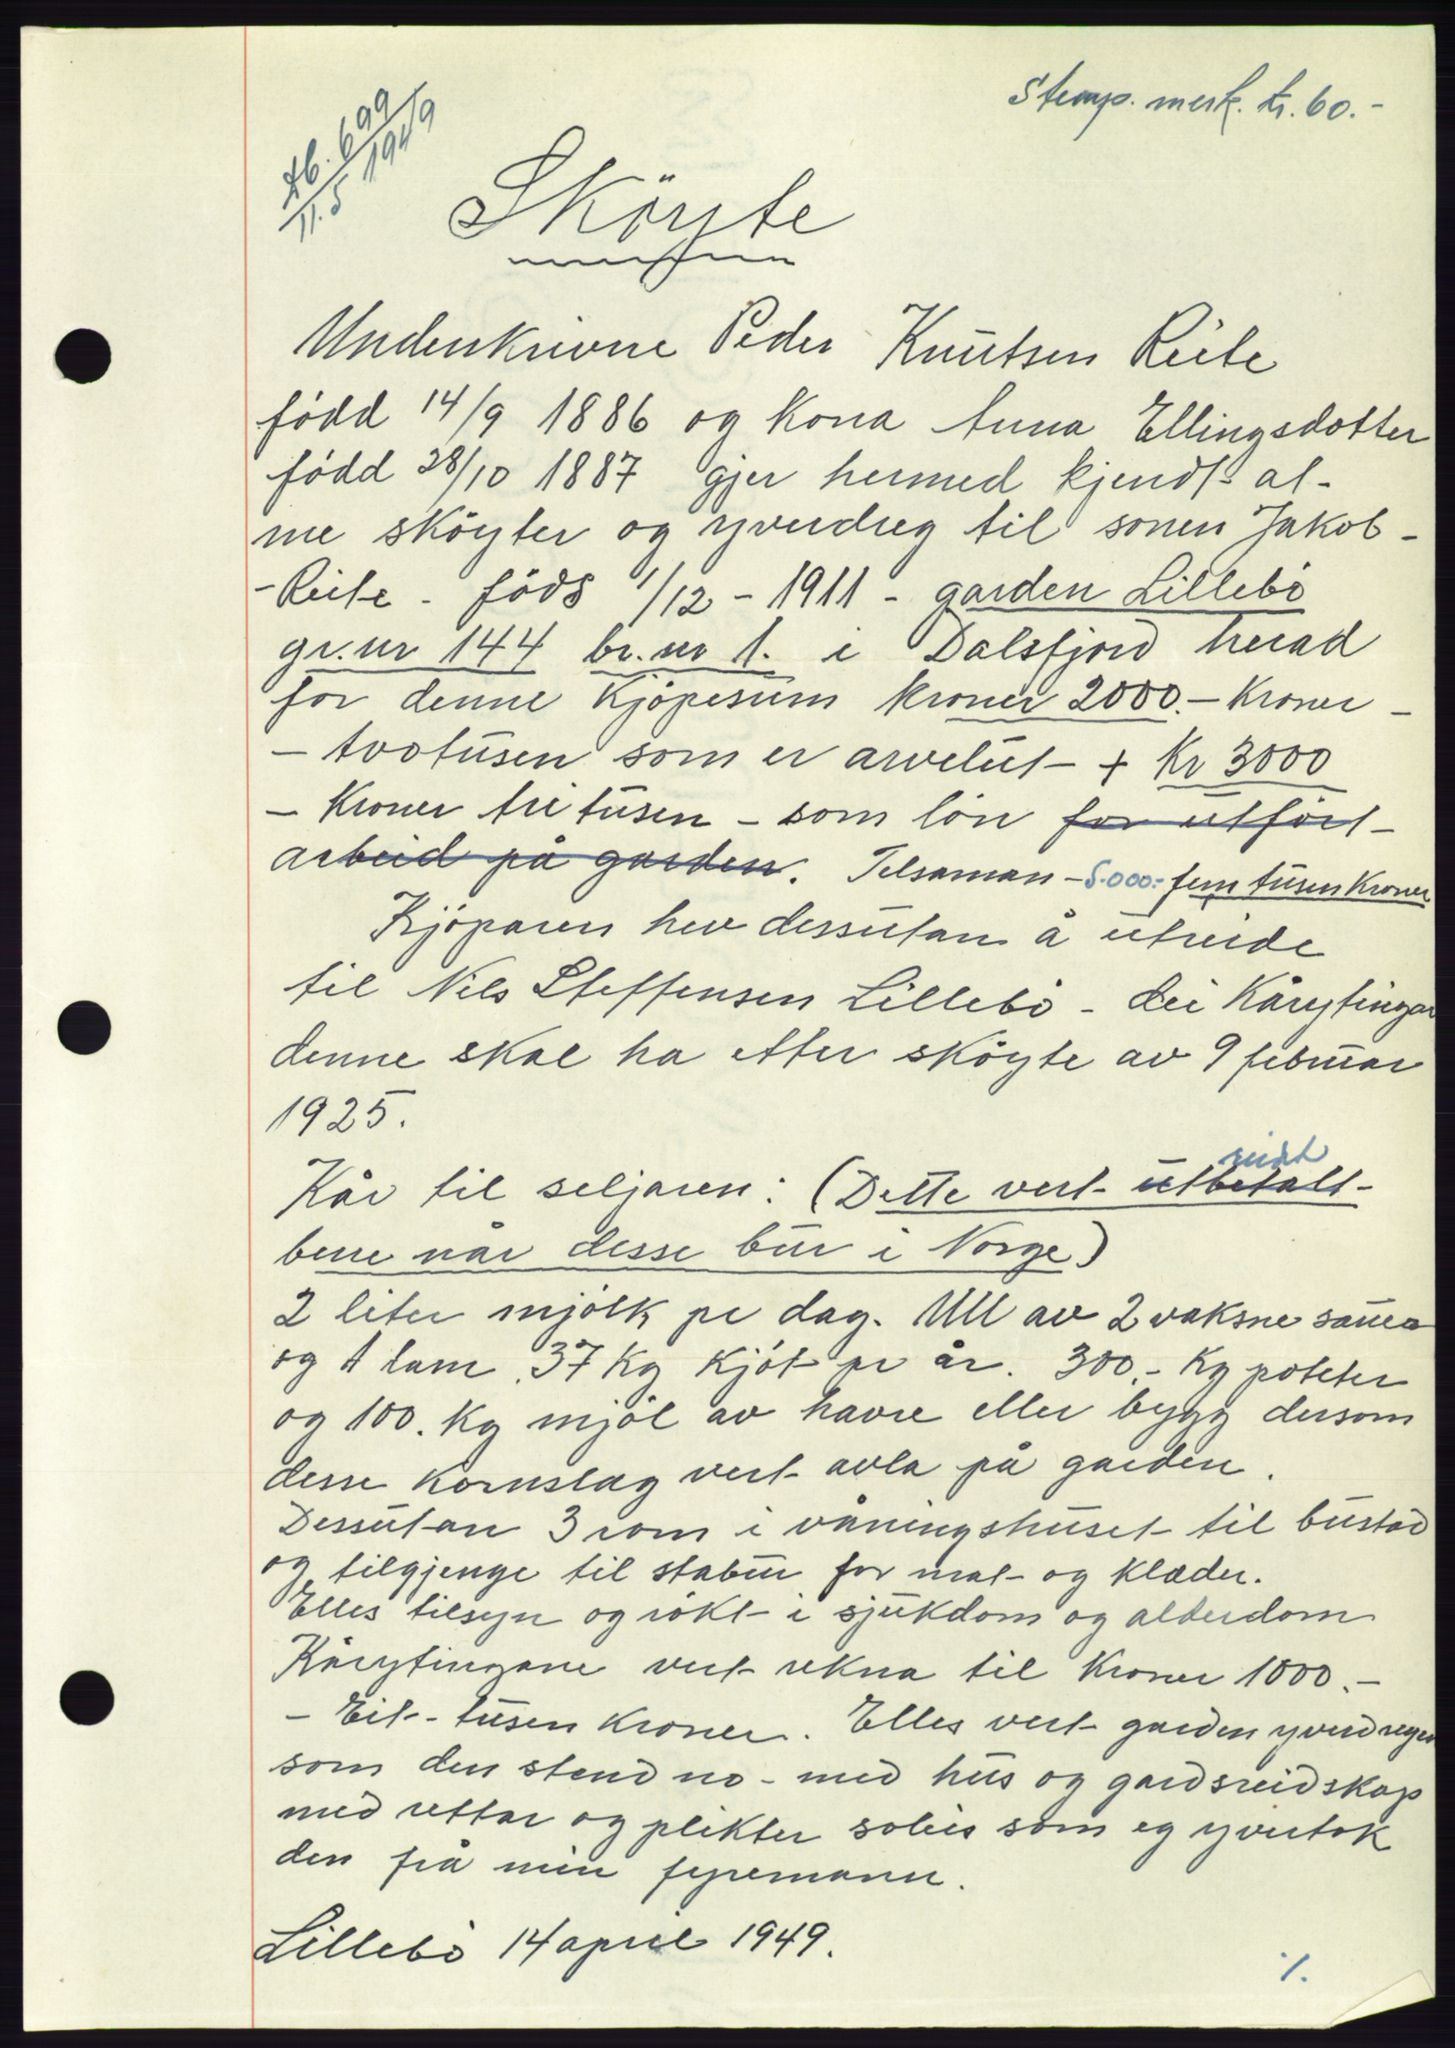 Stemp. merk. kr. 60.-
Db. 699
11.5 1949
Sköyte
Underskrivne Peder Knutsen Reite
född 14/9 1886 og kona Anna Ellingsdotter
född 28/10 1887 gjer hermed kjendt at-
me sköyter og yverdreg til sonen Jakob -
- Reite - föds 1/12 - 1911 - garden Lillebö
gr.nr 144 br.nr 1. i Dalsfjord herad
for denne kjöpesum kroner 2000.- kroner -
- tvotusen som er arvelut - + Kr 3000
- Kroner tri tusen - som lön for utfört-
arbeid på garden. Tilsaman - 5.000.- fem tusen kroner
Kjöparen hev dessutan å utreide
til Nils Steffensen Lillebö - dei kårytingar
denne skal ha etter sköyte av 9 februar
1925.
reidt
Kår til seljaren: (Dette vert utbetalt-
berre når desse bur i Norge)
2 liter mjölk pr dag. Ull av 2 vaksne sauer
og 1 lam. 37 kg kjöt pr år. 300.- kg poteter
og 100. kg mjöl av havre eller bygg dersom
desse kornslag vert avla på garden.
Dessutan 3 rom i våningshuset til bustad
og tilgjenge til stabur for mat og klæder.
Elles tilsyn og rökt i sjukdom og alderdom
Kårytingane vert rekna til kroner 1000.-
- Eit - tusen kroner. Elles vert garden yverdregen
som den stend no - med hus og gardsreidskap
med rettar og plikter soleis som eg yvertok
den frå min fyremann.
Lillebö 14 april 1949.
·/.